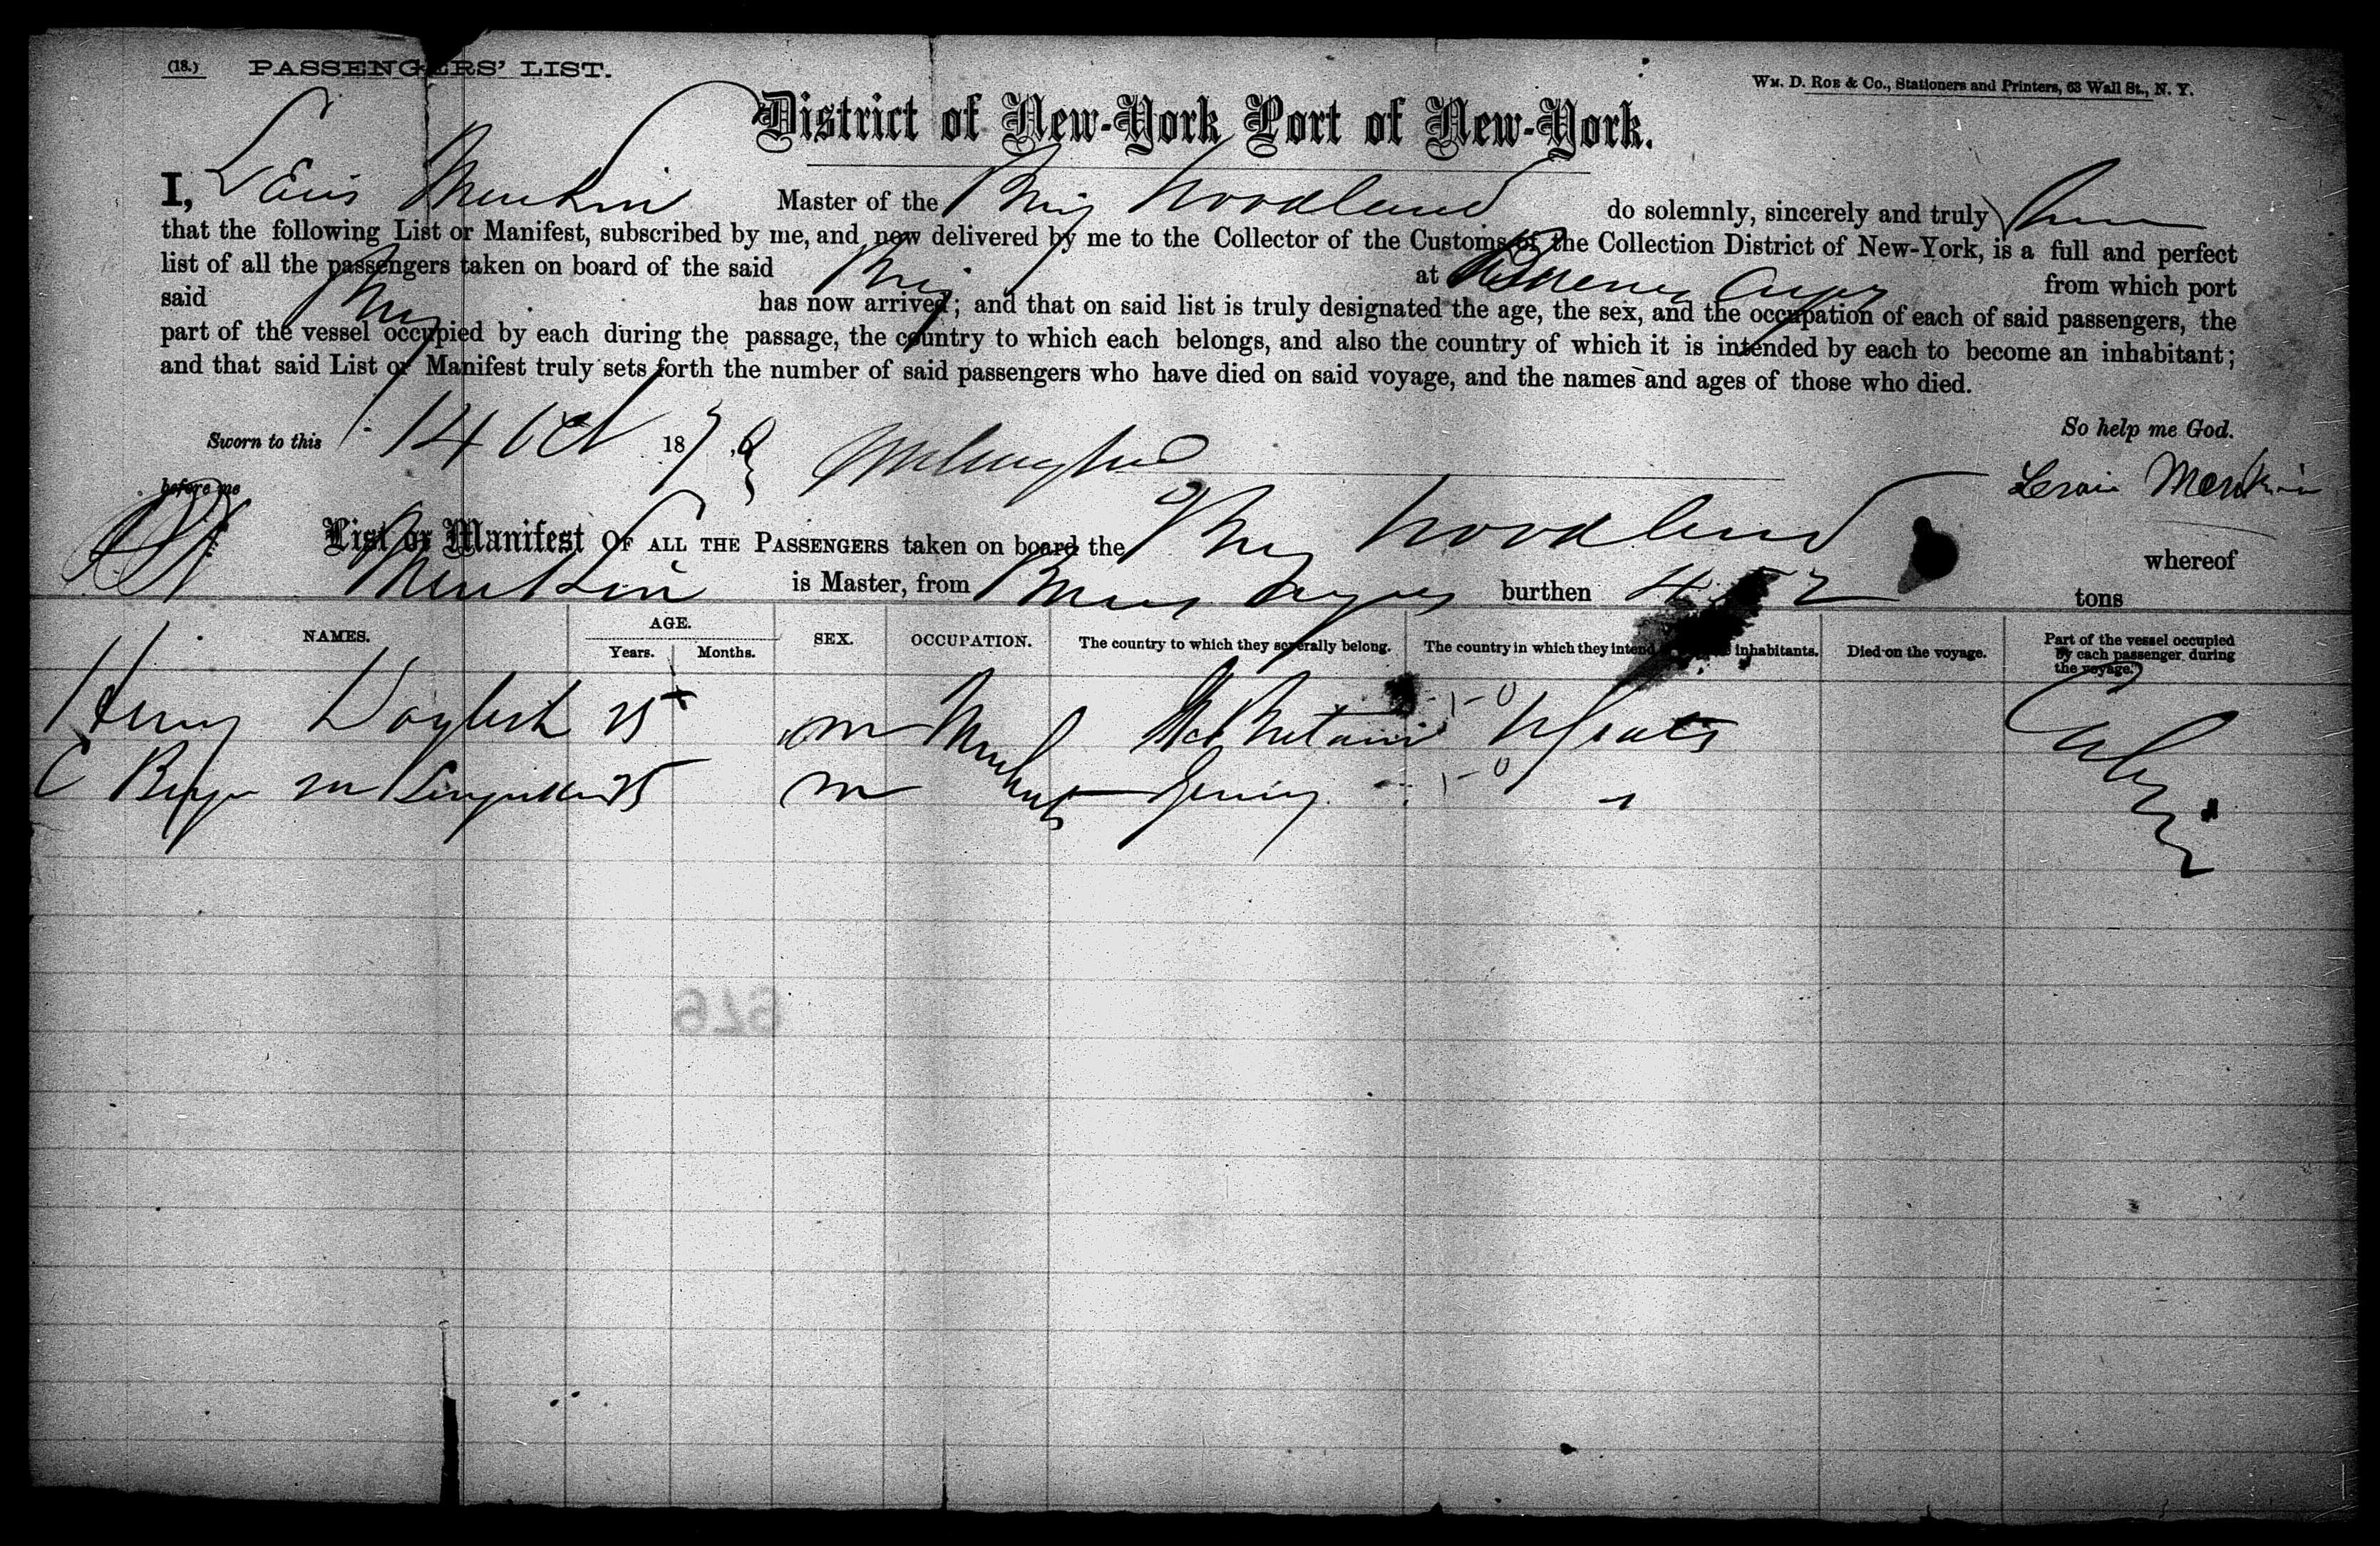 (18.) PASSENGERS' LIST.
WM. D. ROE & CO., Stationers and Printers, 63 Wall St., N. Y.
District of New-York Port of New-York.
I, Menkin Master of the Brig Woodland do solemnly, sincerely and truly
that the following List or Manifest, subscribed by me, and now delivered by me to the Collector of the Customs of the Collection District of New-York, is a full and perfect
list of all the passengers taken on board of the said Brig at from which port
said Brig has now arrived; and that on said list is truly designated the age, the sex, and the occupation of each of said passengers, the
part of the vessel occupied by each during the passage, the country to which each belongs, and also the country of which it is intended by each to become an inhabitant;
and that said List or Manifest truly sets forth the number of said passengers who have died on said voyage, and the names and ages of those who died.
So help me God.
Sworn to this 14 Oct 187
before me
Menkin
List or Manifest OF ALL THE PASSENGERS taken on board the Brig Woodland whereof
Menkin is Master, from Buenos Ayres burthen 452 tons
NAMES. AGE. Years. Months. SEX. OCCUPATION. The country to which they severally belong. The country in which they intend inhabitants. Died on the voyage. Part of the vessel occupied by each passenger during the voyage.
Henry 25 m Merchant Gt Britain U States Cabin
C 25 m Germy "